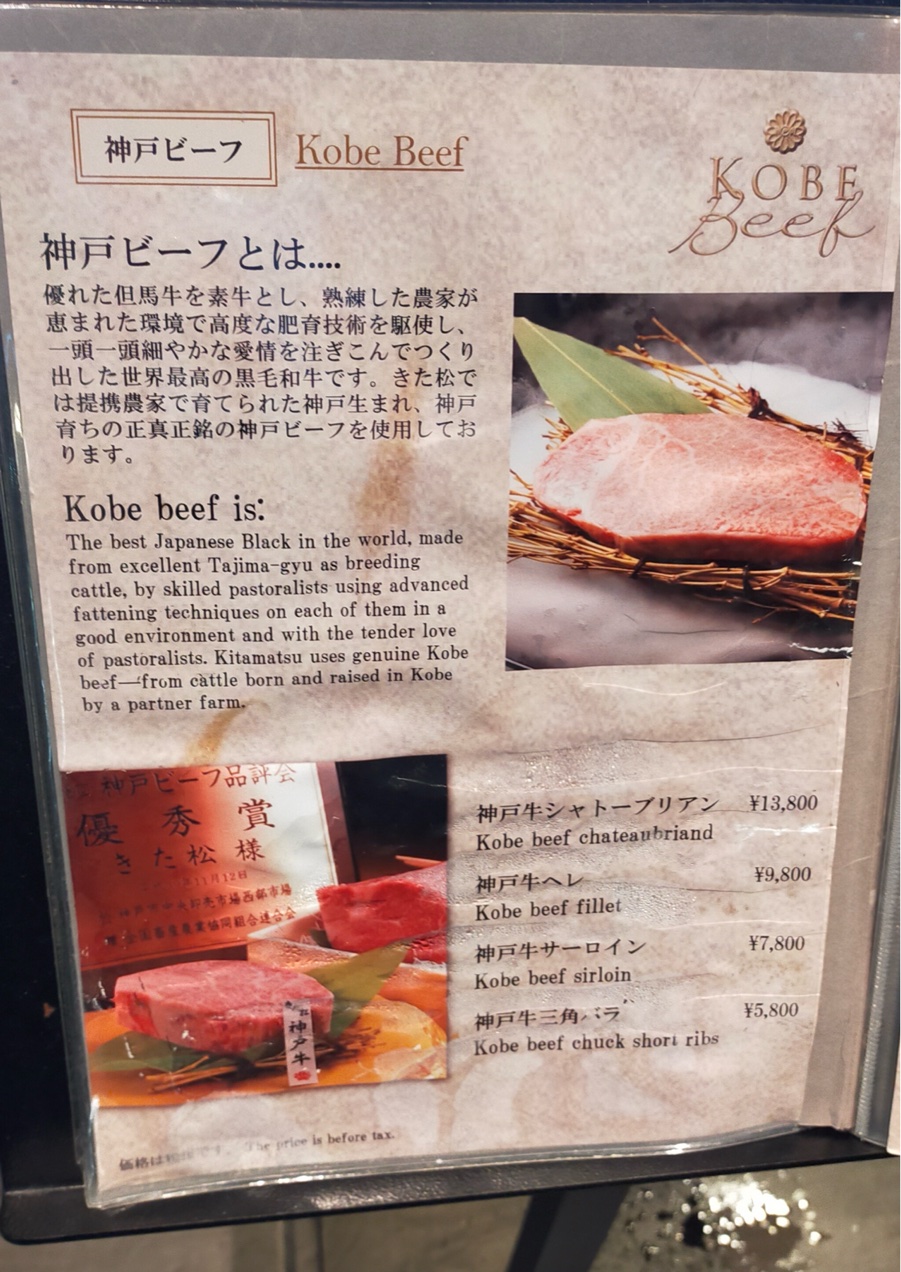 神戸ビーフ
Kobe Beef
KOBE
Beef
神戸ビーフとは....
優れた但馬牛を素牛とし、熟練した農家が
恵まれた環境で高度な肥育技術を駆使し、
一頭一頭細やかな愛情を注ぎこんでつくり
出した世界最高の黒毛和牛です。きた松で
は提携農家で育てられた神戸生まれ、神戸
育ちの正真正銘の神戸ビーフを使用してお
ります。
Kobe beef is:
The best Japanese Black in the world, made
from excellent Tajima-gyu as breeding
cattle, by skilled pastoralists using advanced
fattening techniques on each of them in a
good environment and with the tender love
of pastoralists. Kitamatsu uses genuine Kobe
beef—from cattle born and raised in Kobe
by a partner farm.
神戸ビーフ品評会
優秀賞
きた松様
11月12日
神戸市中央卸売市場西部市場
神戸牛
神戸牛シャトーブリアン ¥13,800
Kobe beef chateaubriand
神戸牛ヘレ ¥9,800
Kobe beef fillet
神戸牛サーロイン ¥7,800
Kobe beef sirloin
神戸牛三角バラ ¥5,800
Kobe beef chuck short ribs
価格は です。 The price is before tax.